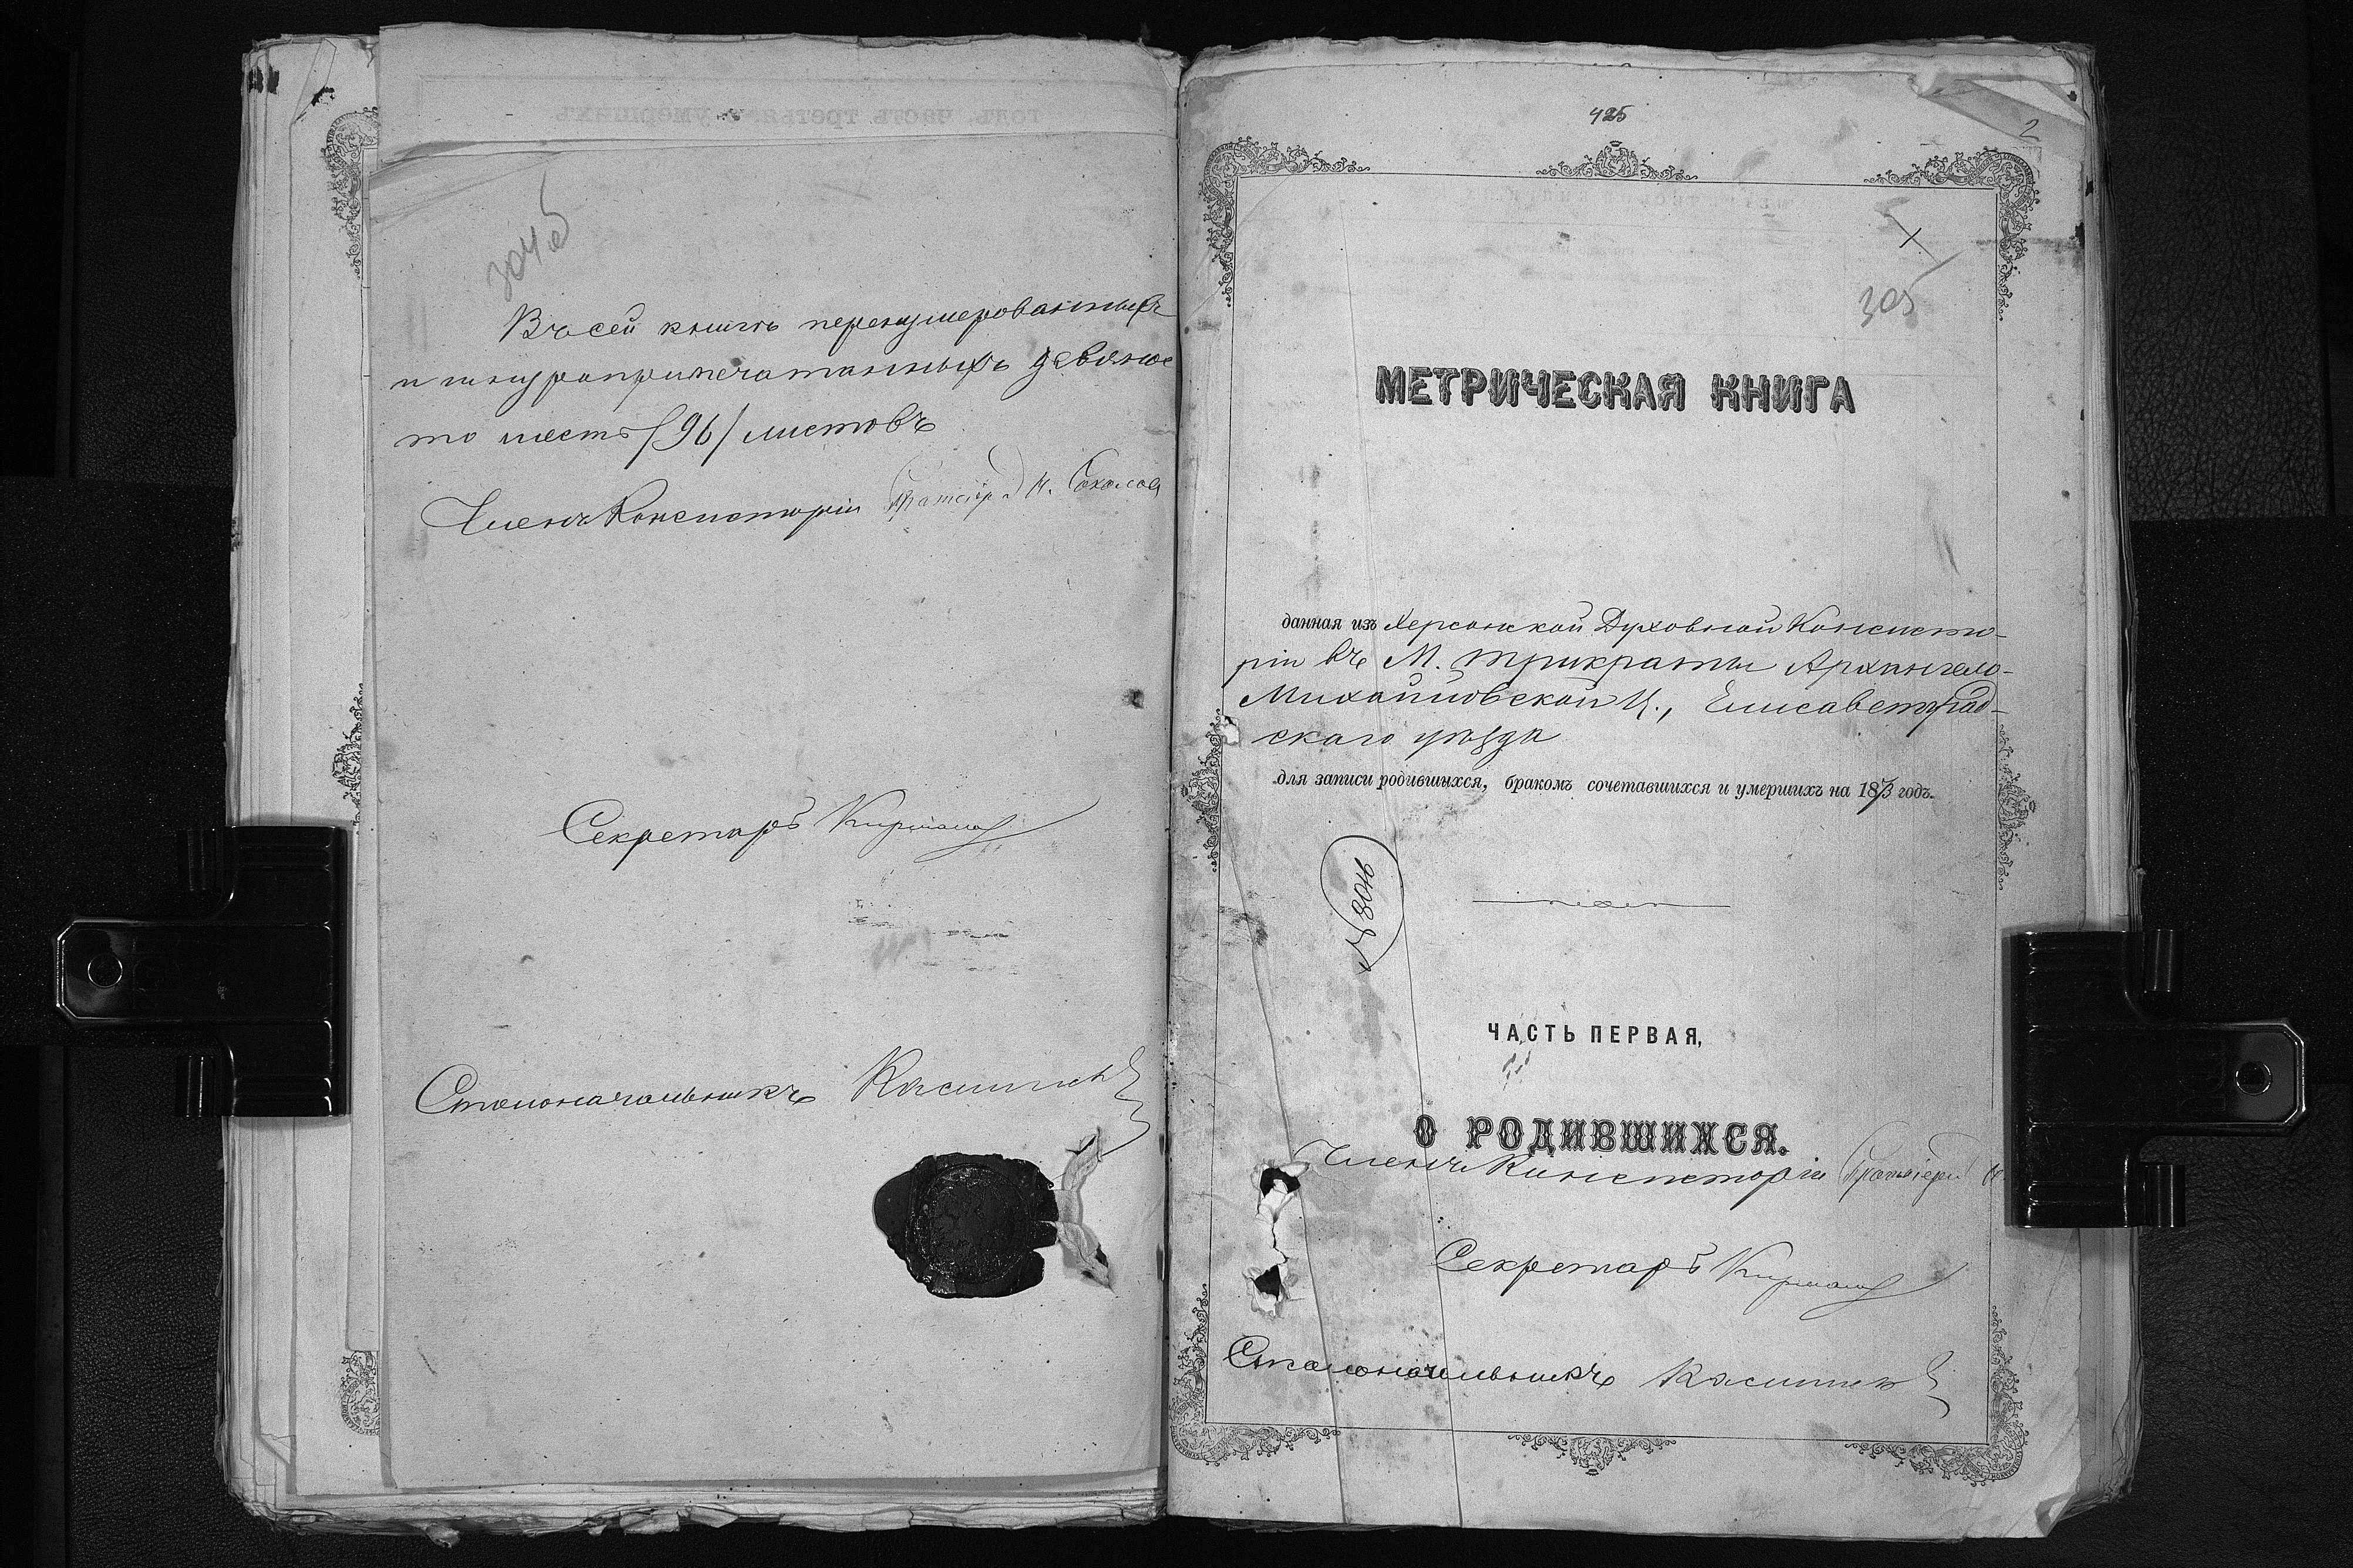 304 об
Въ сей книгѣ перенумерованныхъ
и шнуроприпечатанныхъ девяно
то шесть /96/ листовъ
Членъ Консисторіи
Секретарь
Столоначальникъ
425
2
305
МЕТРИЧЕСКАЯ КНИГА
данная изъ Херсонской Духовной Консисто-
ріи въ М. Трикраты Архангело-
Михайловской Ц., Елисаветград-
скаго уѣзда
для записи родившихся, бракомъ сочетавшихся и умершихъ на 1873 годъ.
ЧАСТЬ ПЕРВАЯ,
О РОДИВШИХСЯ.
Членъ Консисторіи
Секретарь
Столоначальникъ